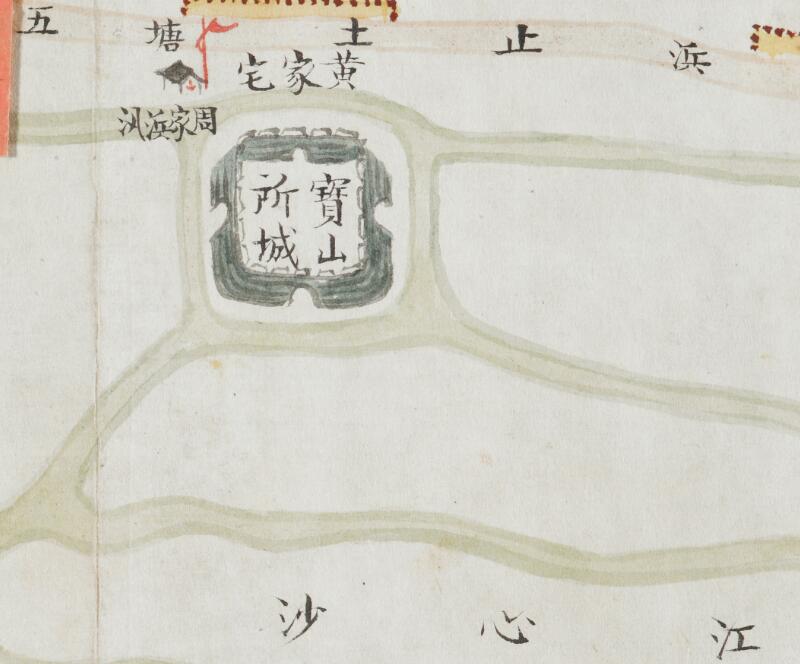 浜止土塘五
黄家宅
周家浜汛
寶山
所城
江心沙